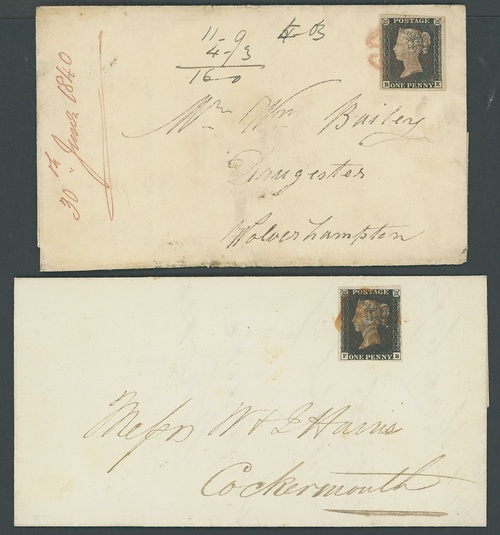 30th June 1840
11-9
4-3
16-0
4-03
POSTAGE
B K
ONE PENNY
Mr. Wm. Bailey
Druggester
Wolverhampton
POSTAGE
F B
ONE PENNY
Messrs W & J Harris
Cockermouth